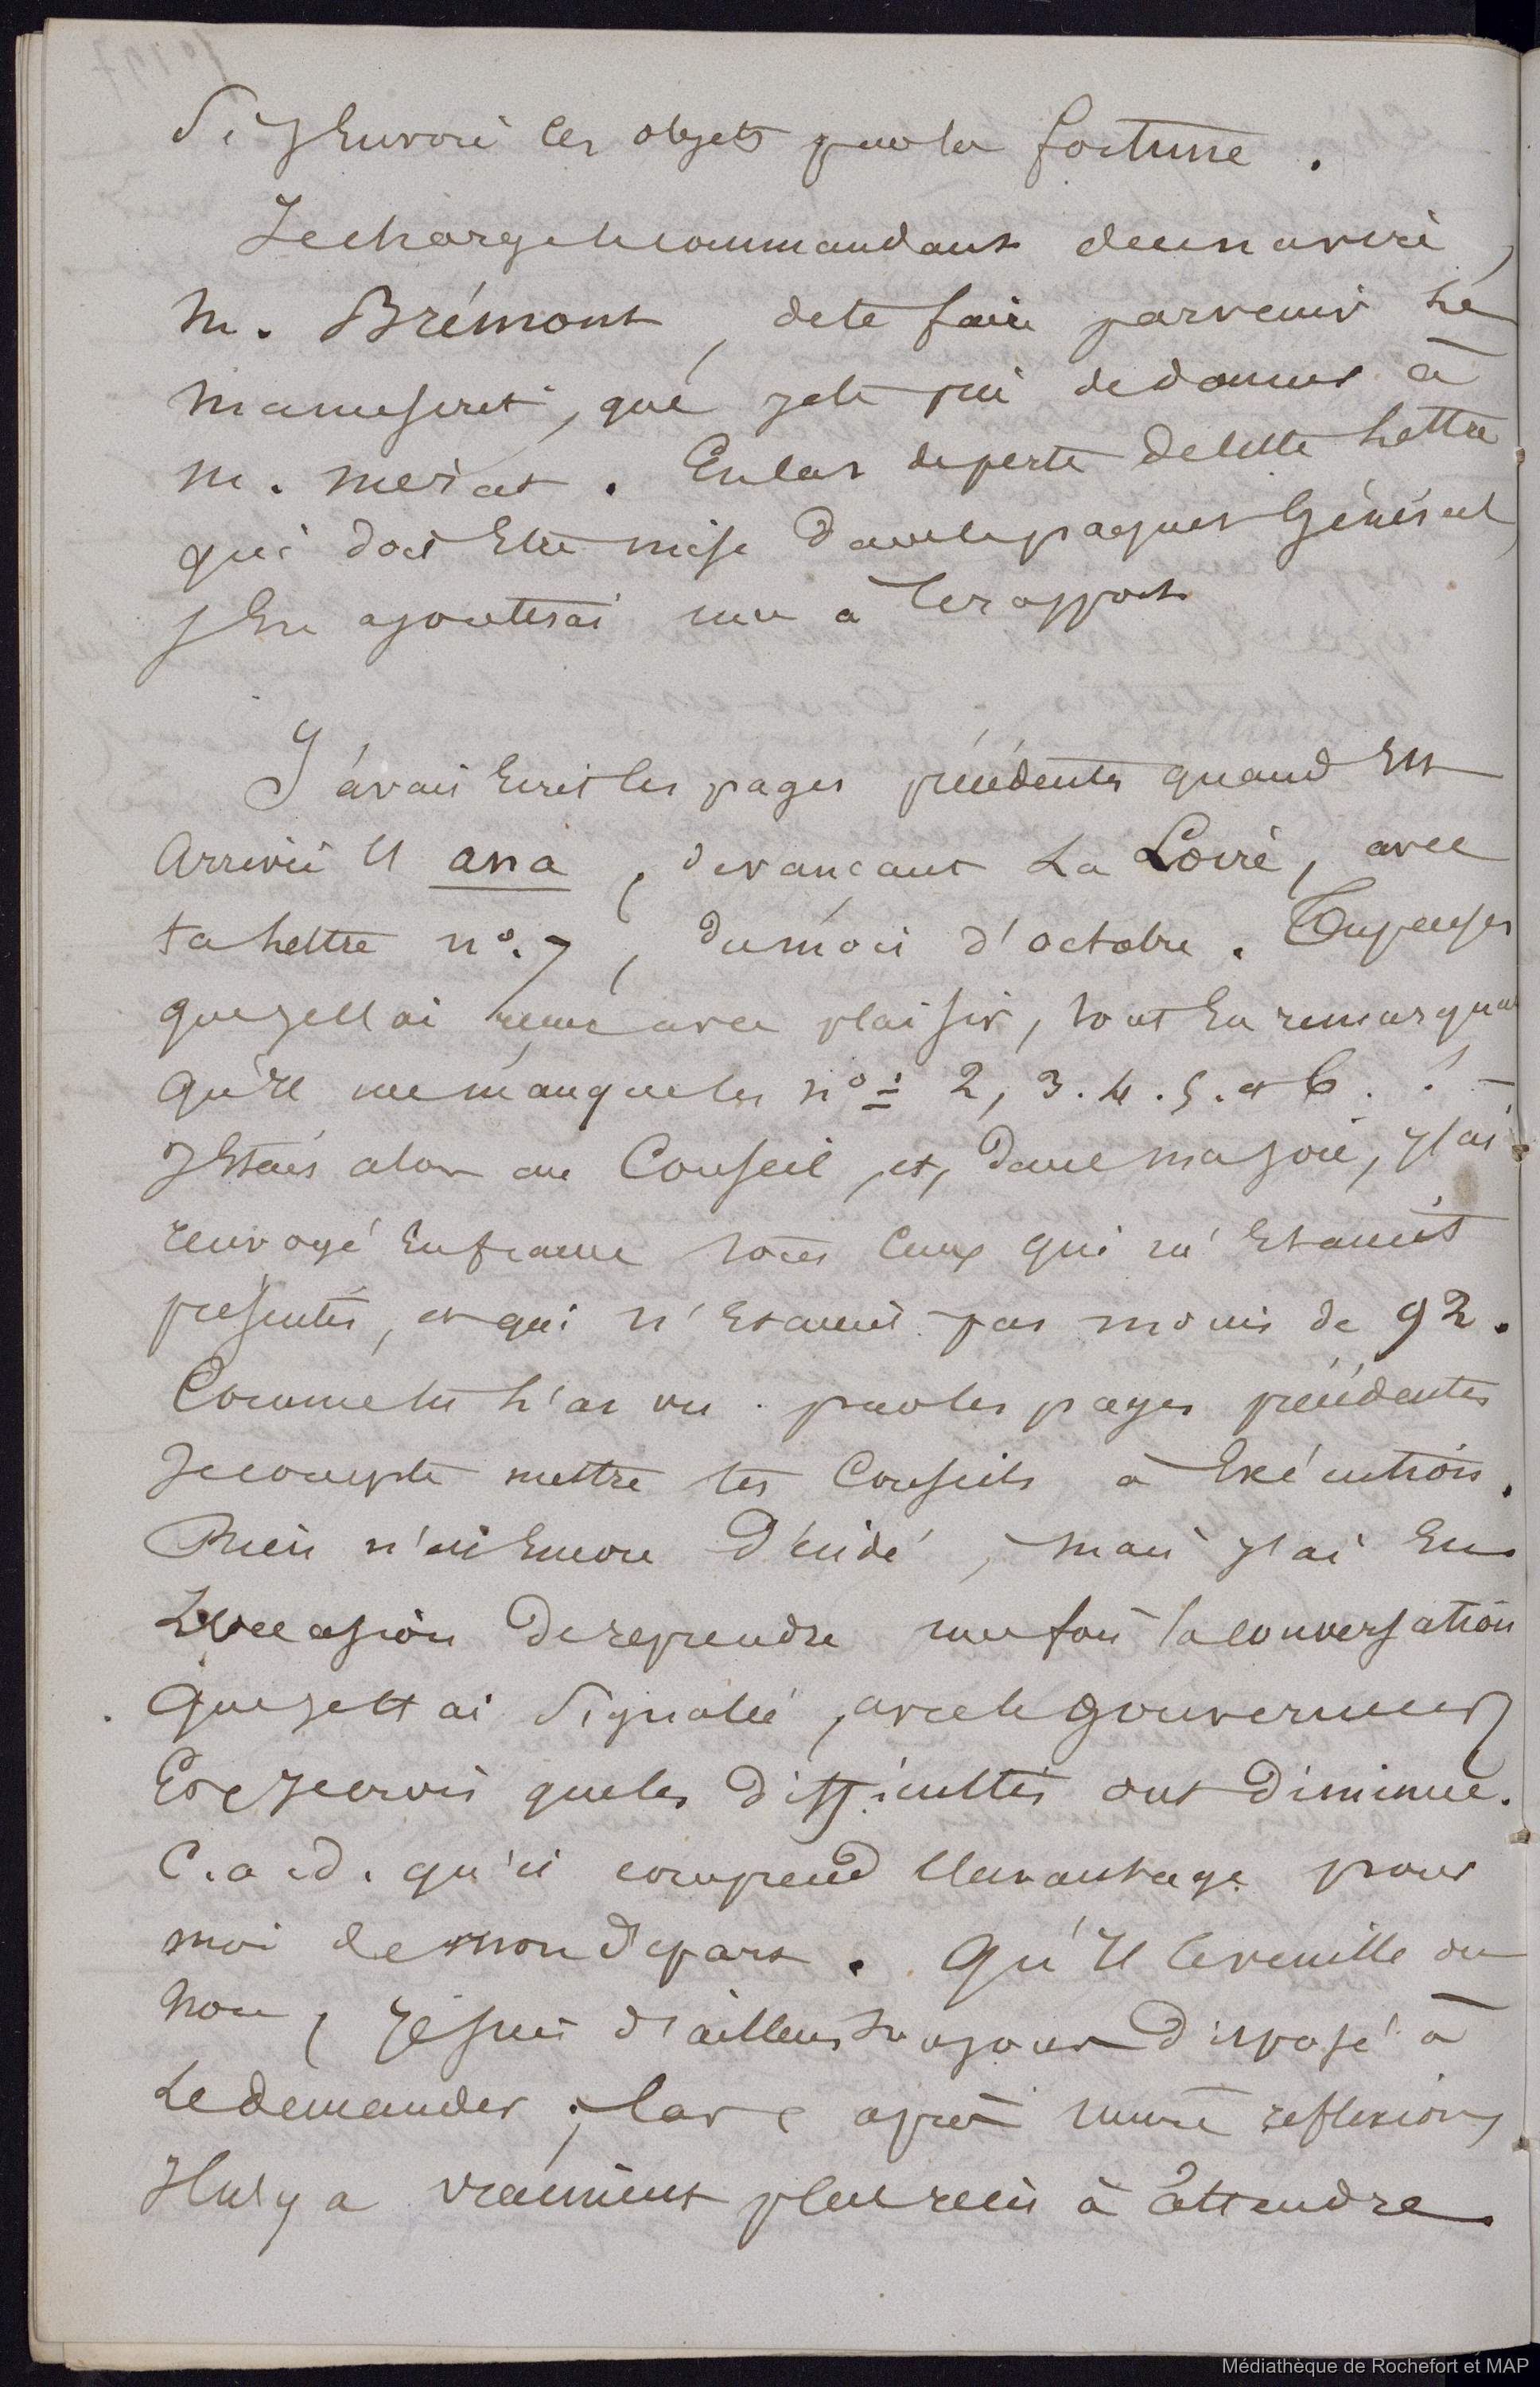 Si j'Envoie les objets par la fortune.
Je charge le commandant du navire,
M. Brémont, de te faire parvenir le
manuscrit, que je te prie de donner à
M. Merat. En cas de perte de cette lettre
qui doit Etre mise dans le paquet Général,
j'En ajouterai une à Ces rapports
J'avais Ecrit les pages précédentes quand Est
Arrivée l'ana, devançant La Loire, avec
ta lettre n°. 7, du mois d'octobre. Tu penses
que je l'ai reçue avec plaisir, tout En remarquant
qu'Il me manque les nos 2, 3. 4. 5. et 6. ! –
J'Etais alors au Conseil, et, dans ma joie, j'ai
renvoyé En france tous Ceux qui m'Etaient
présentés, et qui n'Etaient pas moins de 92.
Comme tu l'as vu par les pages précédentes
Je compte mettre tes Conseils à Exécution.
Rien n'est Encore Décidé, mais j'ai Eu
L'occasion De reprendre une fois la conversation
que je t'ai Signalée, avec le gouverneur
Et je crois que les Difficultés ont Diminué.
C. a. d. qu'il comprend l'avantage pour
moi de mon Départ. Qu'Il le veuille ou
non, Je suis d'ailleurs toujours Disposé à
Le demander; Car après mure reflexion,
Il n'y a vraiment plus rien à attendre.
Médiathèque de Rochefort et MAP